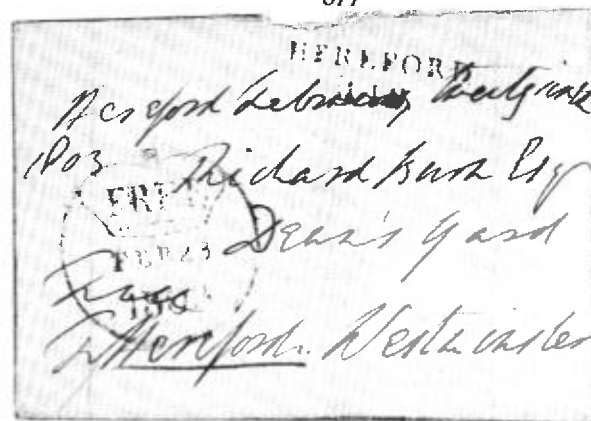 HEREFORD
Hereford February twenty nine
1803
Richard Burn Esq
FREE
FEB 23
1803
Dean's Yard
Free
Hereford. Westminster